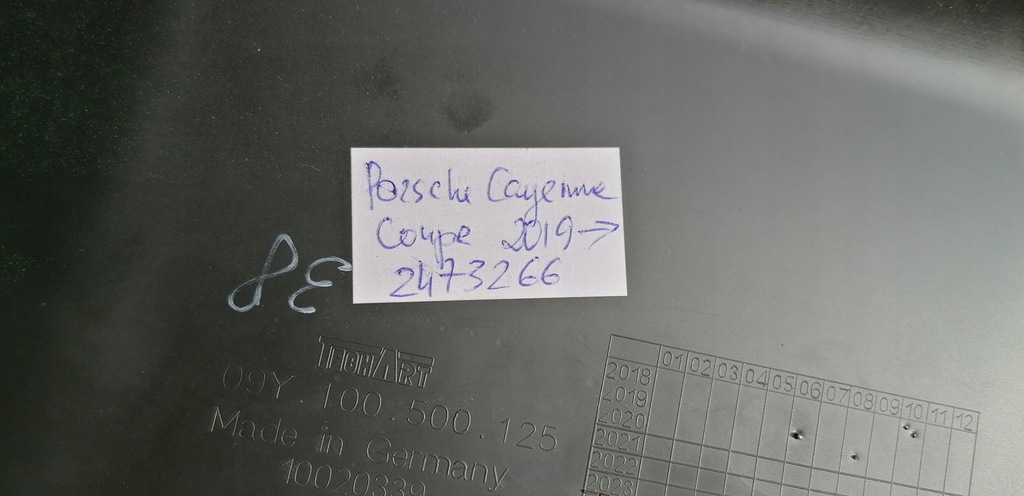 Porsche Cayenne
Coupe 2019→
2473266
TECHART
09Y.100.500.125
Made in Germany
10020339
01 02 03 04 05 06 07 08 09 10 11 12
2018
2019
2020
2021
2022
2023